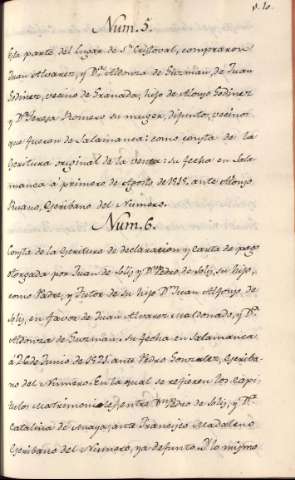 p. 10.
Num. 5.
Esta parte del lugar de Sn. Cristoval, compraron
Juan Alvarez, y Da. Aldonza de Guzman, de Juan
Godinez, vecino de Granada, hijo de Alonso Godinez
y Da. Teresa Romero su muger, difunto, vecinos
que fueron de Salamanca: como consta de la
Escritura original de la venta: su fecha en Sala-
manca à primero de Agosto de 1518. ante Alonso
Escribano del Numero.
Num. 6.
Consta de la Escritura de declaracion y carta de pago
otorgada por Juan de Solis, y Dn. Pedro de Solis, su hijo,
como Padre, y Tutor de su hijo Dn. Juan Alfonso de
Solis, en favor de Juan Alvarez Maldonado, y Da.
Aldonza de Guzman: su fecha en Salamanca
à 26 de Junio de 1521. ante Pedro Gonzalez, Escriba-
no del Numero. En la qual se refieren los Capi-
tulos Matrimoniales, entre Dn. Pedro de Solis, y Da.
Catalina de Anaya, ante Francisco Madaleno
Escribano del Numero, ya defunto. Y lo mismo